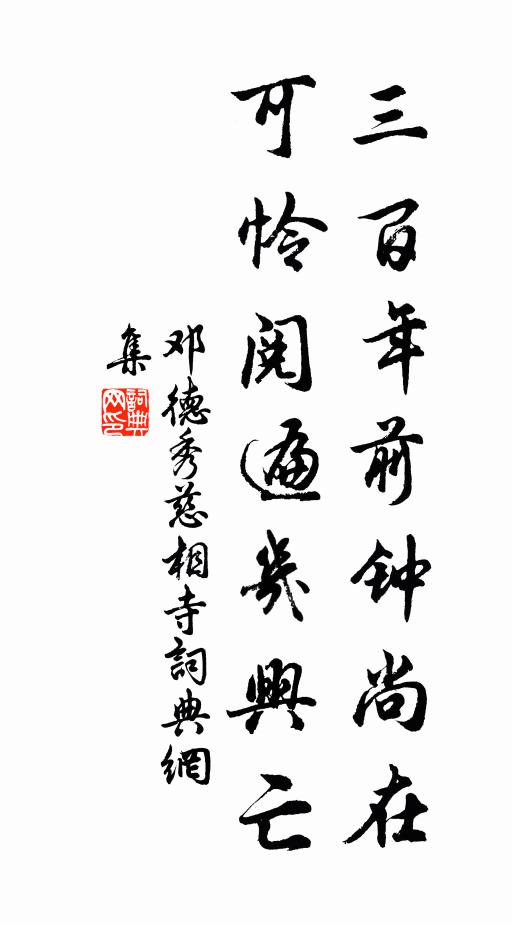 三百年前钟尚在
可怜阅遍几兴亡
邓德秀慈相寺词典網
集
词典网印